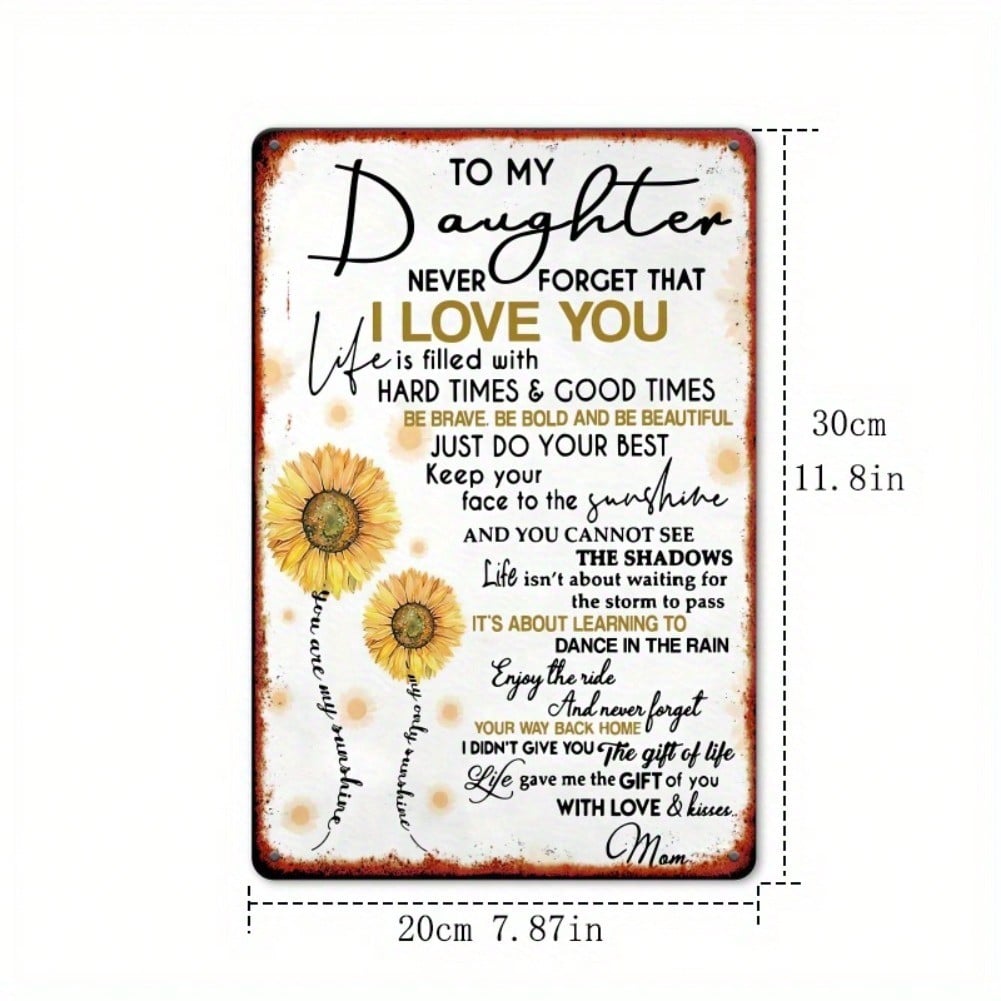 TO MY
Daughter
NEVER FORGET THAT
I LOVE YOU
Life is filled with
HARD TIMES & GOOD TIMES
BE BRAVE. BE BOLD AND BE BEAUTIFUL
JUST DO YOUR BEST
Keep your
face to the sunshine
AND YOU CANNOT SEE
THE SHADOWS
Life isn't about waiting for
the storm to pass
IT'S ABOUT LEARNING TO
DANCE IN THE RAIN
Enjoy the ride
And never forget
YOUR WAY BACK HOME
I DIDN'T GIVE YOU The gift of life
Life gave me the GIFT of you
WITH LOVE & kisses..
Mom
you are my sunshine
my only sunshine
30cm
11.8in
20cm 7.87in